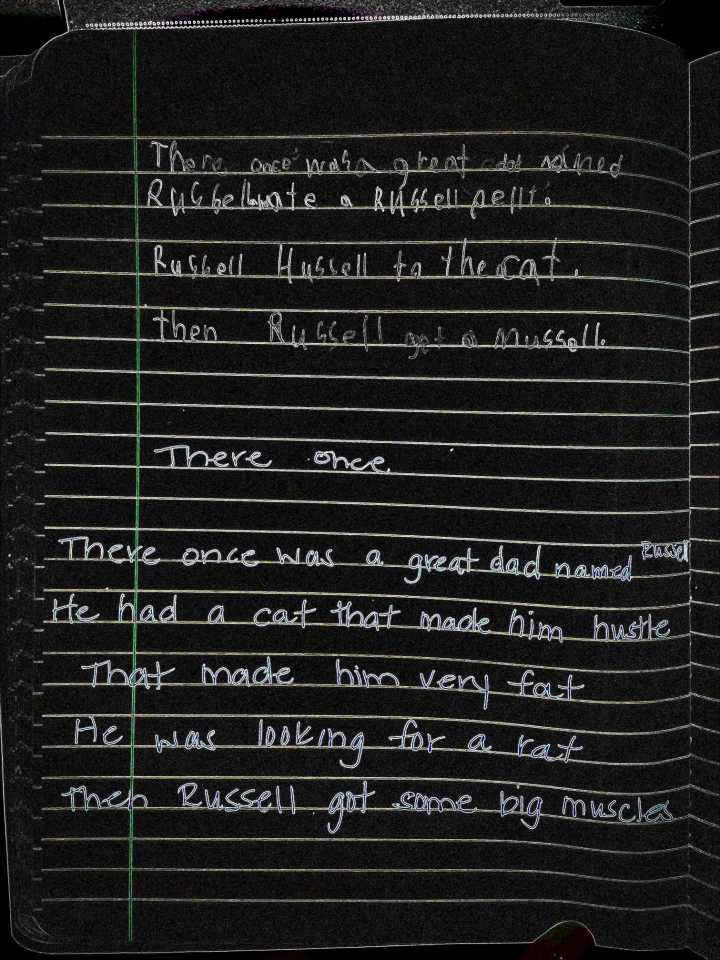 There once was a great dad named
a Russell pellt.
Russell Hussell to the cat.
then Russell got a mussell.
There once
There once was a great dad named Russel
He had a cat that made him hustle
That made him very fat
He was looking for a rat
Then Russell got some big muscles